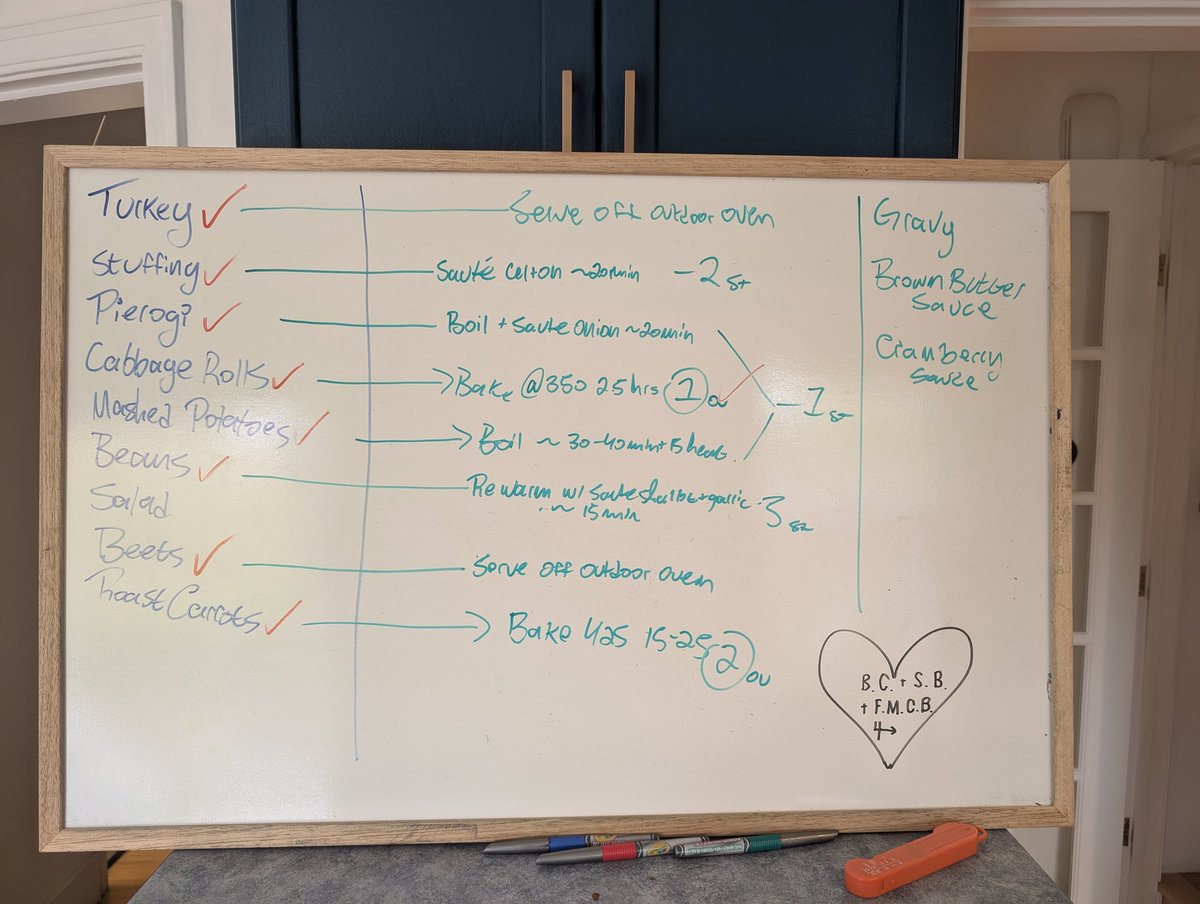 Turkey ✓ Serve off outdoor oven
Stuffing ✓ Sauté cel+on ~20min - 2 st
Pierogi ✓ Boil + Saute onion ~20min
Cabbage Rolls ✓ Bake @350 2.5hrs 1 ov ✓
- 1 st
Mashed Potatoes ✓ Boil ~ 30-40min + 5 heat
Beans ✓ Rewarm w/ Saute + garlic - 3 st
~ 15min
Salad
Beets ✓ Serve off outdoor oven
Roast Carrots ✓ Bake 425 15-25 2 ov
Gravy
Brown Butter
Sauce
Cranberry
Sauce
B.C. + S.B.
+ F.M.C.B.
4→